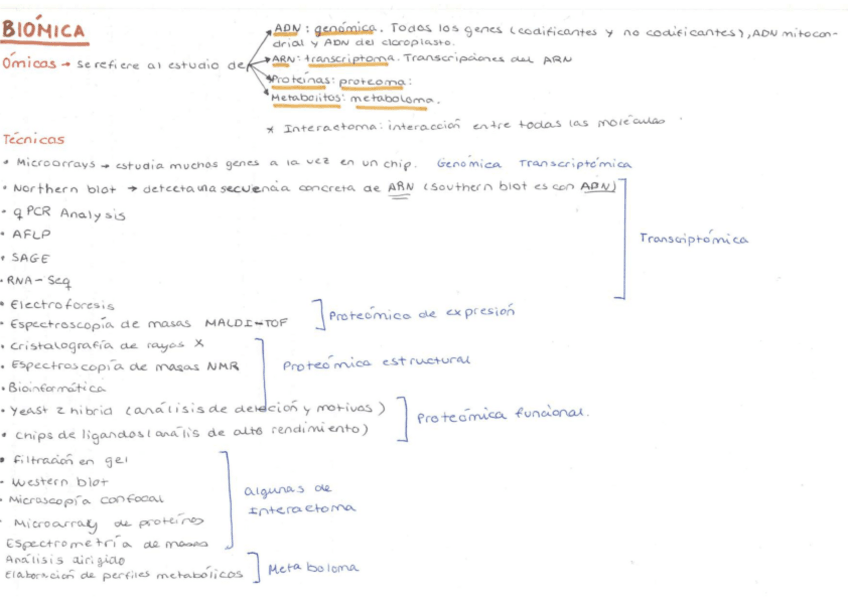 BIÓMICA
ADN: genómica. Todos los genes (codificantes y no codificantes), ADN mitocon-
drial y ADN del cloroplasto.
Ómicas → se refiere al estudio de
ARN: transcriptoma. Transcripciones del ARN
Proteínas: proteoma:
Metabolitos: metaboloma.
* Interactoma: interacción entre todas las moléculas
Técnicas
• Microarrays → estudia muchos genes a la vez en un chip. Genómica Transcriptómica
• Northern blot → detecta una secuencia concreta de ARN (southern blot es con ADN)
• qPCR Analysis
• AFLP
Transcriptómica
• SAGE
• RNA-Seq
• Electroforesis
Proteómica de expresión
• Espectroscopía de masas MALDI-TOF
• cristalografía de rayos X
• Espectroscopía de masas NMR
Proteómica estructural
• Bioinformática
• Yeast 2 hibrid (análisis de deleción y motivos)
Proteómica funcional.
• chips de ligandos (anális de alto rendimiento)
• Filtración en gel
• Western blot
algunas de
• Microscopía confocal
Interactoma
• Microarray de proteínas
Espectrometría de masas
Análisis dirigido
Metaboloma
Elaboración de perfiles metabólicos